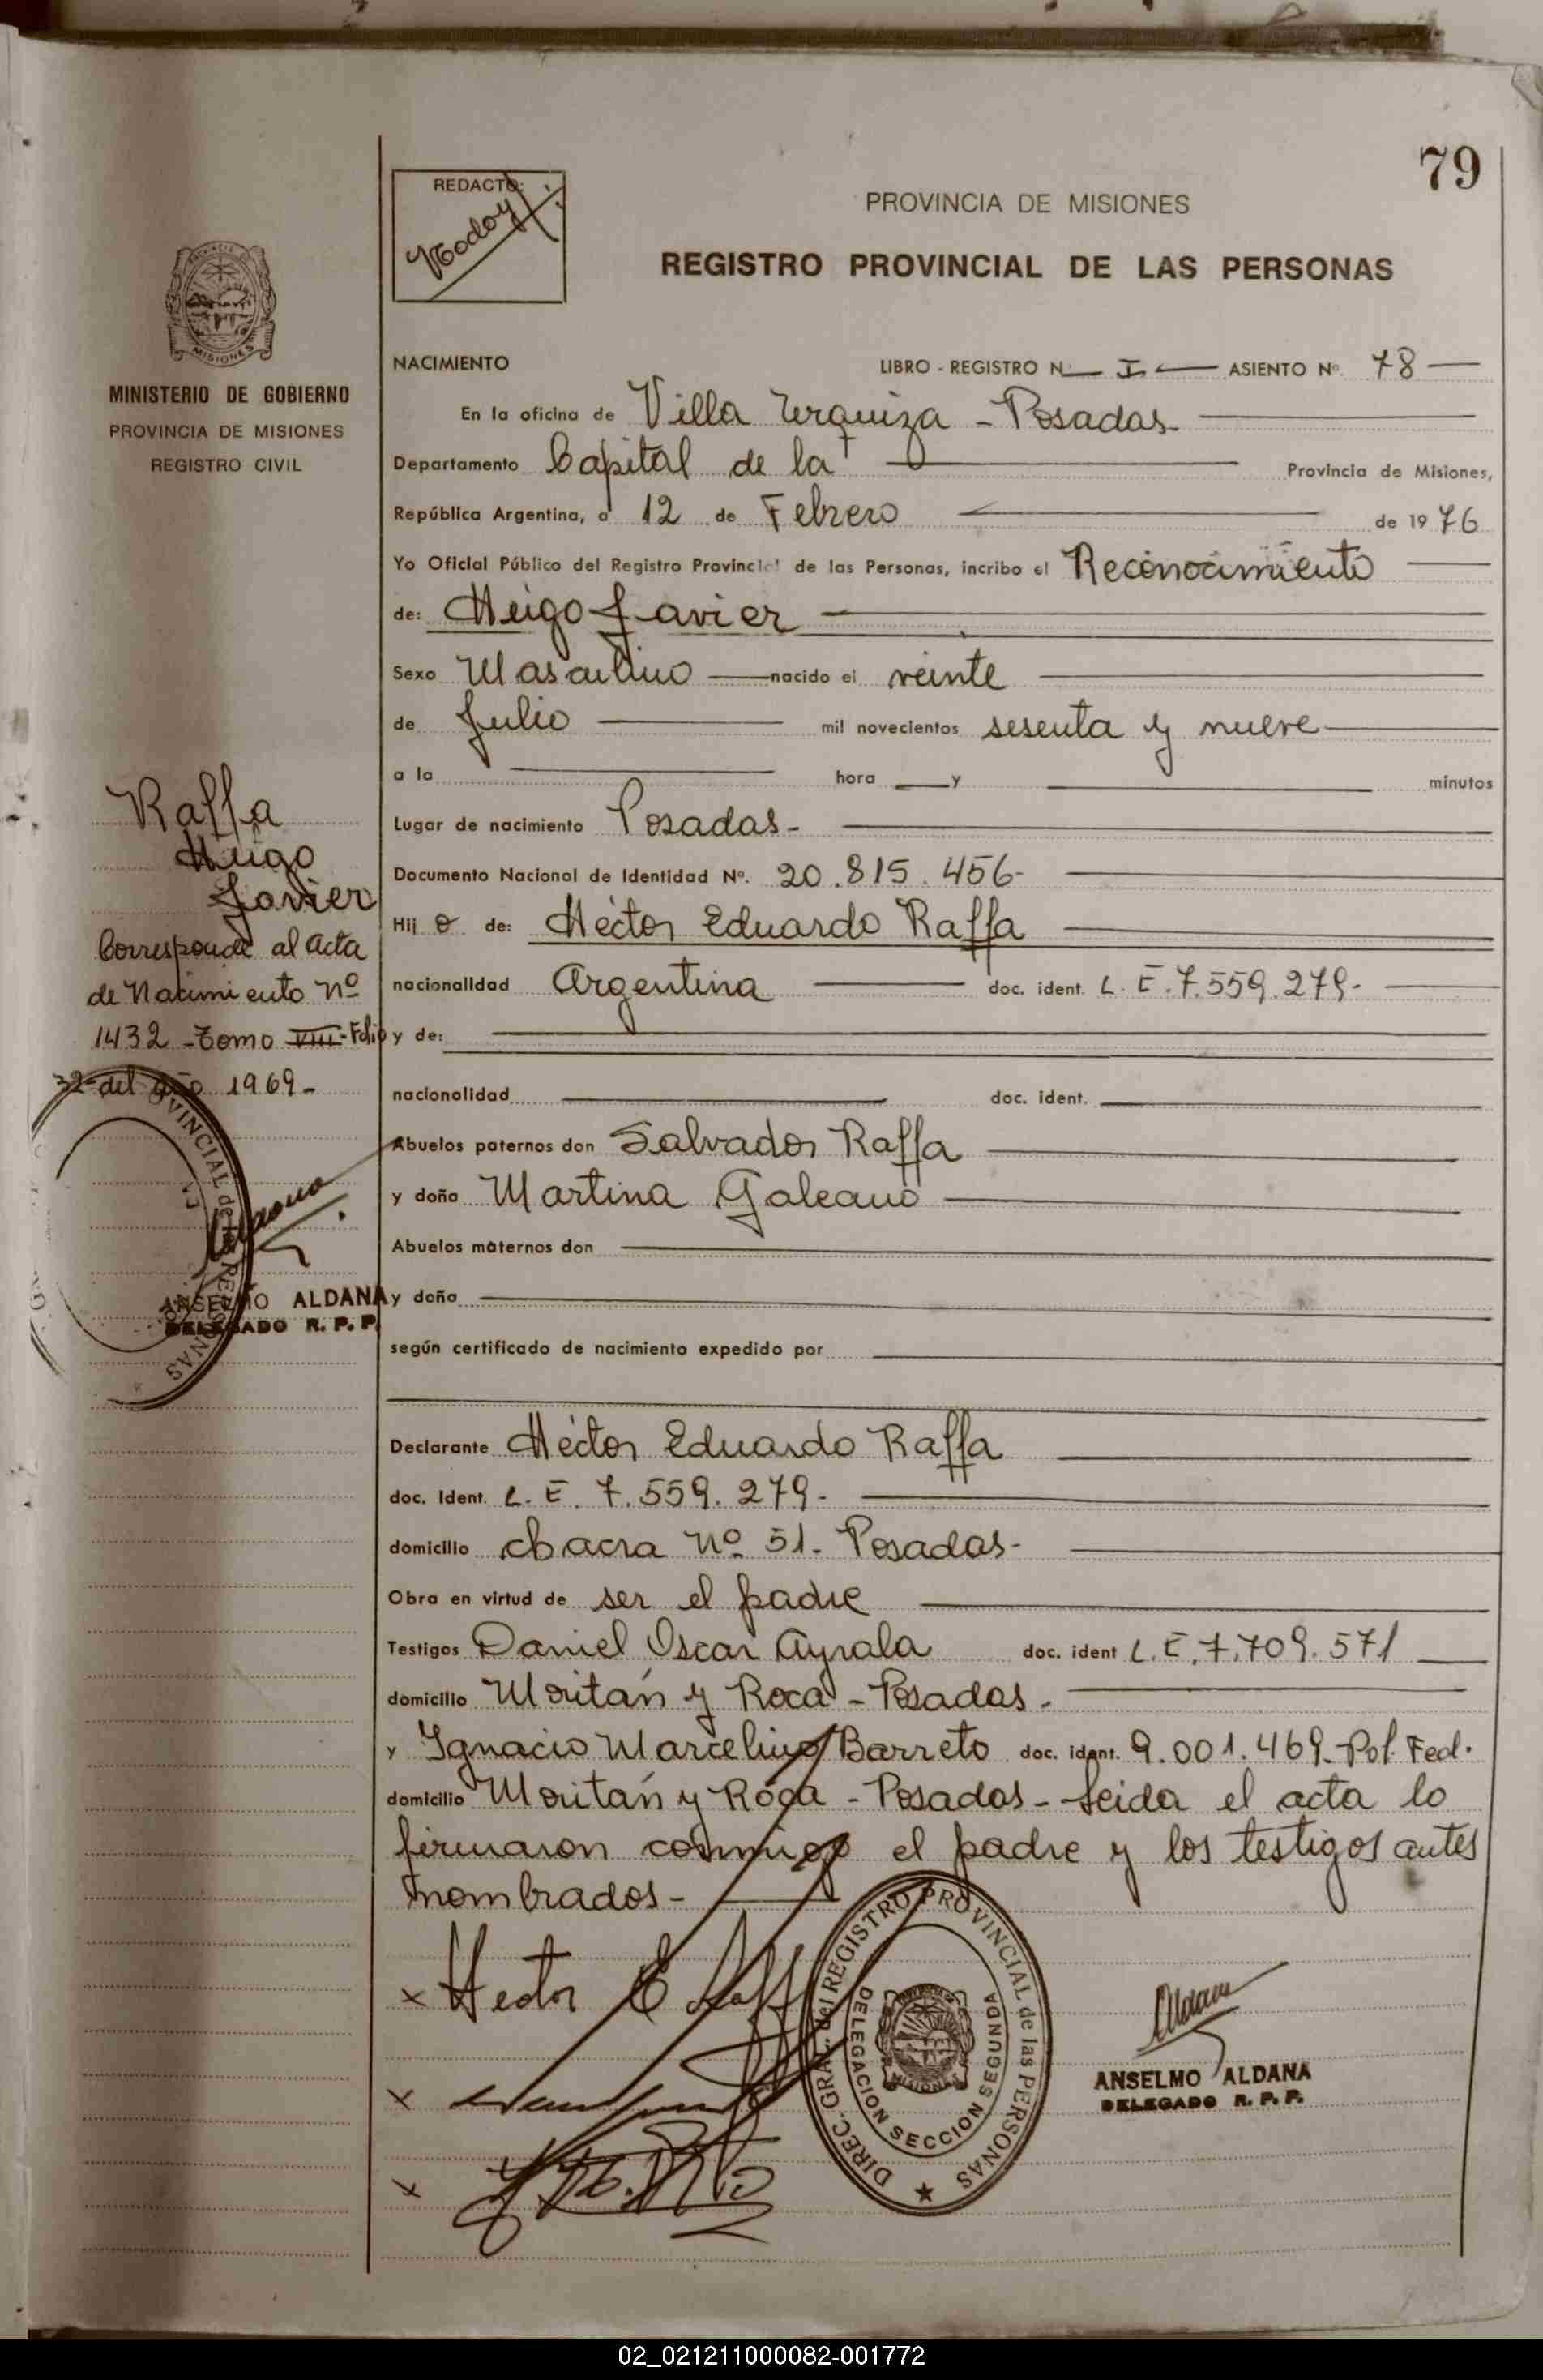 79
REDACTO:
PROVINCIA DE MISIONES
REGISTRO PROVINCIAL DE LAS PERSONAS
MISIONES
MINISTERIO DE GOBIERNO
PROVINCIA DE MISIONES
REGISTRO CIVIL
NACIMIENTO LIBRO - REGISTRO N I ASIENTO Nº 78
En la oficina de Villa Urquiza - Posadas-
Departamento Capital de la Provincia de Misiones,
República Argentina, a 12 de Febrero de 1976
Yo Oficial Público del Registro Provincial de las Personas, incribo el Reconocimiento
de: Hugo Javier
Sexo Masculino nacido el veinte
de Julio mil novecientos sesenta y nueve
a la hora y minutos
Lugar de nacimiento Posadas-
Documento Nacional de Identidad Nº. 20.815.456-
Hijo de: Héctor Eduardo Raffa
nacionalidad Argentina doc. ident. L.E.7.559.279-
y de:
nacionalidad doc. ident.
Abuelos paternos don Salvador Raffa
y doña Martina Galeano
Abuelos maternos don
y doña
según certificado de nacimiento expedido por
Declarante Héctor Eduardo Raffa
doc. Ident. L.E. 7.559.279-
domicilio chacra Nº 51- Posadas-
Obra en virtud de ser el padre
Testigos Daniel Oscar Ayrala doc. ident L.E.7.709.571
domicilio Moritán y Roca - Posadas-
y Ignacio Marcelino Barreto doc. ident. 9.001.469- Pol. Fed.
domicilio Moritán y Roca - Posadas- Leida el acta lo
firmaron conmigo el padre y los testigos antes
nombrados-
Raffa
Hugo
Javier
Corresponde al acta
de Nacimiento Nº
1432 - Tomo VIII- Folio
32- del año 1969-
PROVINCIAL de las PERSONAS
ANSELMO ALDANA
DELEGADO R. P. P.
x Hector E Raffa
x
x
DIREC. GRAL. del REGISTRO PROVINCIAL de las PERSONAS
DELEGACION SECCION SEGUNDA
MISIONES
Aldana
ANSELMO ALDANA
DELEGADO R. P. P.
02_021211000082-001772